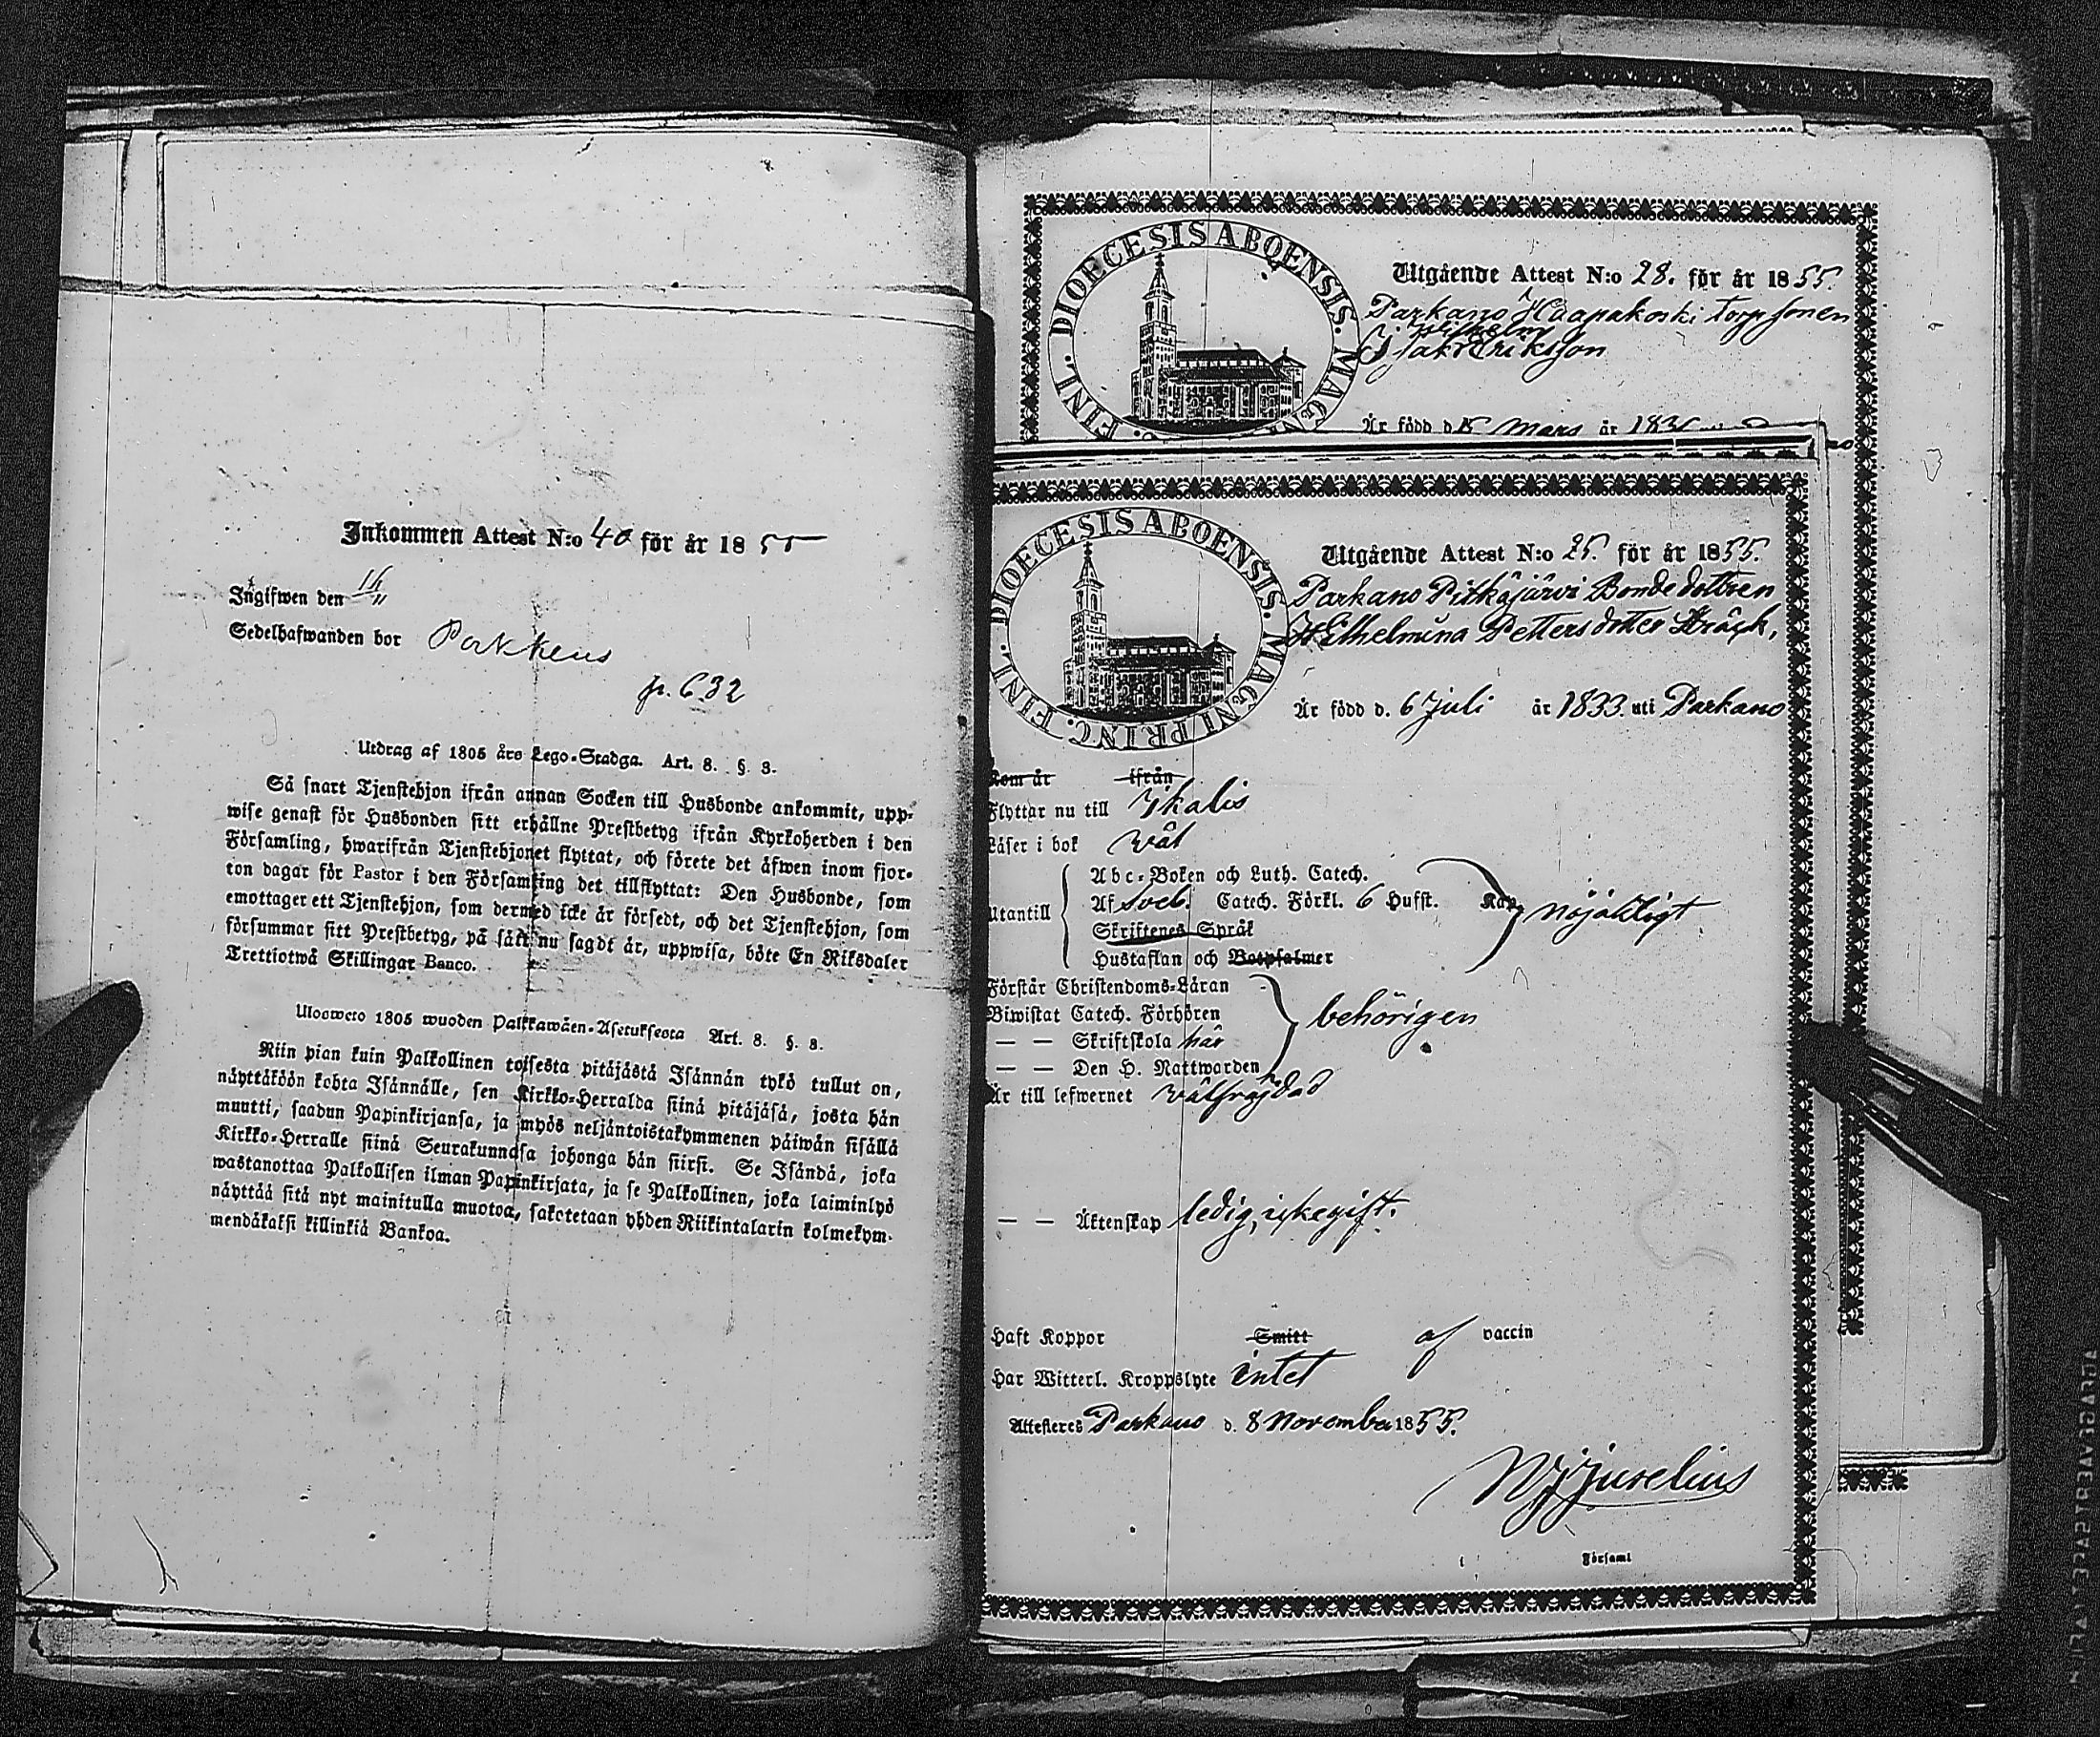 Inkommen Attest N:o 40 för år 1855
Ingifwen den 16/11
Sedelhafwanden bor
p. 632
Utdrag af 1805 års Lego-Stadga. Art. 8. §. 8.
Så snart Tjenstehjon ifrån annan Socken till Husbonde ankommit, upp-
wise genast för Husbonden sitt erhållne Prestbetyg ifrån Kyrkoherden i den
Församling, hwarifrån Tjenstehjonet flyttat, och förete det äfwen inom fjor-
ton dagar för Pastor i den Församling det tillflyttat: Den Husbonde, som
emottager ett Tjenstehjon, som dermed icke är försedt, och det Tjenstehjon, som
försummar sitt Prestbetyg, på sätt nu sagdt är, uppwisa, böte En Riksdaler
Trettiotwå Skillingar Banco.
Ulosweto 1805 wuoden Palkkawäen-Asetuksesta Art. 8. §. 8.
Niin pian kuin Palkollinen toisesta pitäjästä Isännän tykö tullut on,
näyttäköön kohta Isännälle, sen Kirkko-Herralda siinä pitäjäsä, josta hän
muutti, saadun Papinkirjansa, ja myös neljäntoistakymmenen päiwän sisällä
Kirkko-Herralle siinä Seurakunnasa johonga hän siirsi. Se Isändä, joka
wastanottaa Palkollisen ilman Papinkirjata, ja se Palkollinen, joka laiminlyö
näyttää sitä nyt mainitulla muotoa, sakotetaan yhden Riikintalarin kolmekym-
mendäkaksi killinkiä Bankoa.
DIOECESIS ABOENSIS. MAGNI
FINL.
Utgående Attest N:o 28. för år 1855.
Parkano Haapakoski torpsonen
Wilhelm
Isak Eriksson
Är född d. 5 Mars år
DIOECESIS ABOENSIS. MAGNI PRINC. FINL.
Utgående Attest N:o 25. för år 1855.
Parkano Pitkäjärvi Bondedottren
Wilhelmina Pettersdotter
Är född d. 6 Juli år 1833. uti Parkano
Kom år ifrån
Flyttar nu till Ikalis
Läser i bok wäl
Utantill
Abc-Boken och Luth. Catech.
Af Sveb. Catech. Förkl. 6 Hufst. Kap. nöjaktigt
Skriftenes Språk
Hustaflan och Botpsalmer
Förstår Christendoms-Läran
Biwistat Catech. Förhören behörigen
— — Skriftskola här
— — Den H. Nattwarden
Är till lefwernet wälfräjdad
— — Äktenskap ledig, icke gift.
Haft Koppor Smitt af vaccin
Har Witterl. Kroppslyte intet
Attesteres Parkano d. 8 November 1855.
Juselius
Församl